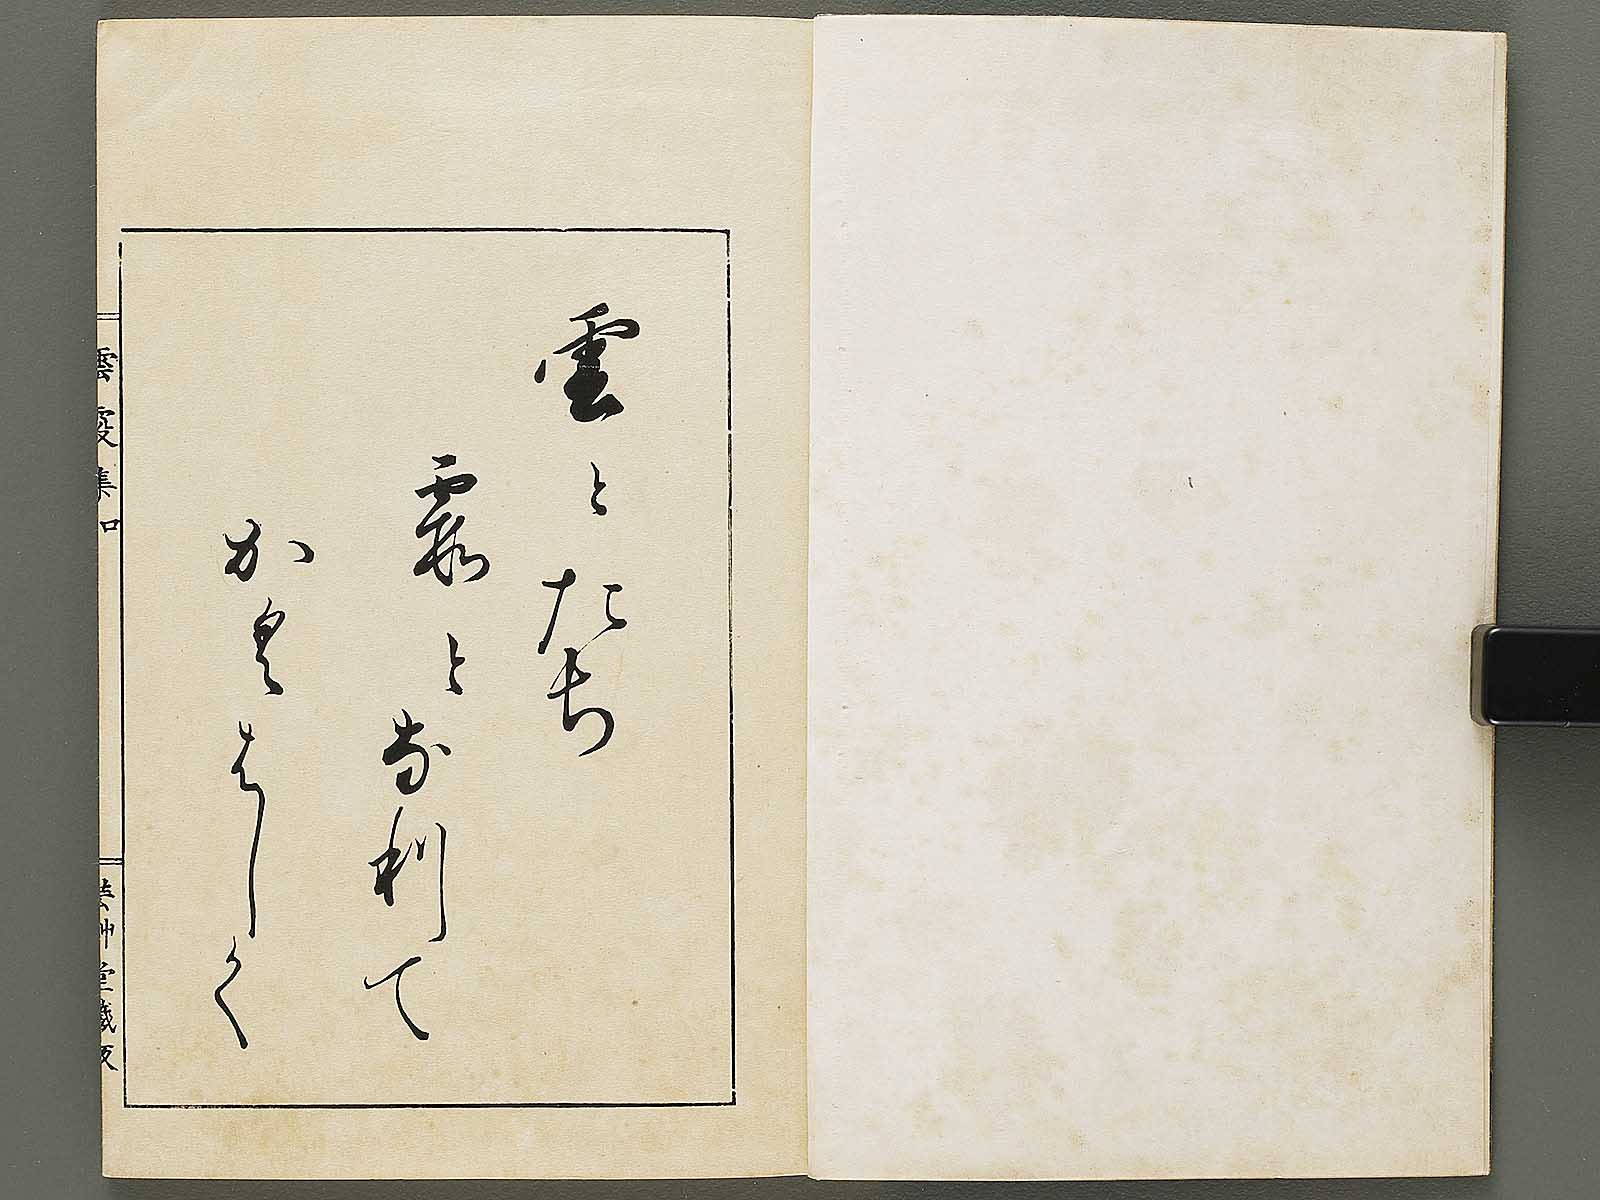 雲とたち
霞となりて
かぐはしく
雲霞集 口
芸艸堂蔵版